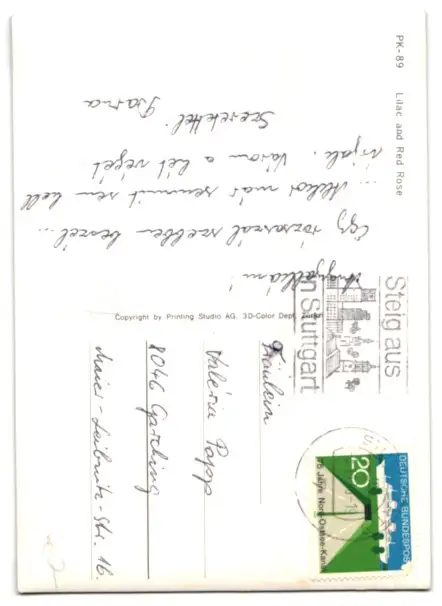 PK-89 Lilac and Red Rose
Angyalkám!
Egy rózsaszál szebben beszél...
... Ahhoz már semmit sem kell
írjak. Várom a hét végét
Szeretettel
Copyright by Printing Studio AG. 3D-Color Dept. Zürich
Steig aus
in Stuttgart
DEUTSCHE BUNDESPOST
20
75 Jahre Nord-Ostsee-Kanal
Fräulein
Valéria Papp
8046 Garching
Maier-Leibnitz-Str. 16.